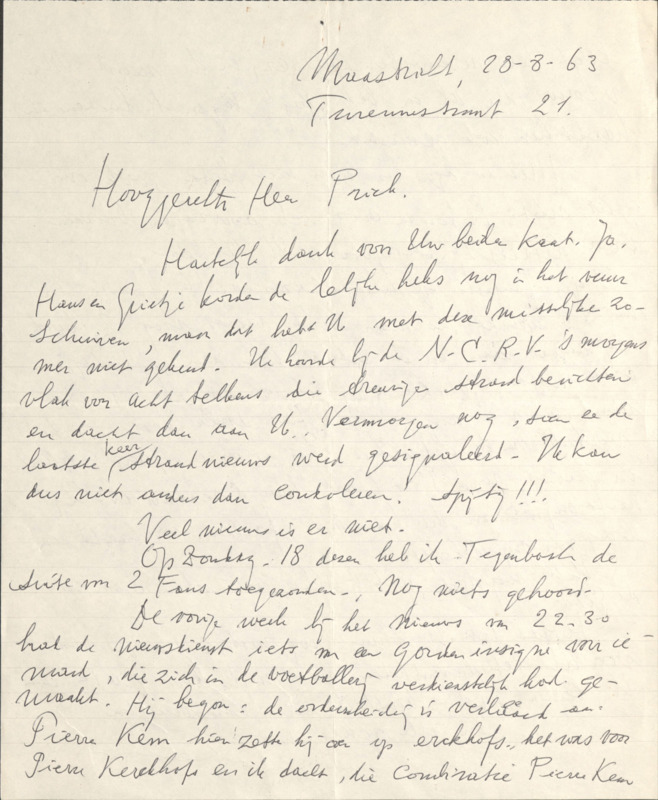 Maastricht, 28-8-63
Turennestraat 21.
Hooggeachte Heer Prick.
Hartelijk dank voor Uw beider kaart. Ja,
Hans en Grietje konden de lelijke heks nog in het vuur
schuiven, maar dat hebt U met deze misselijke zo-
mer niet gekund. Ik hoorde bij de N.C.R.V. 's morgens
vlak voor acht telkens die treurige strand berichten
en dacht dan aan U. Vanmorgen nog, toen er de
laatste keer strandnieuws werd gesignaleerd - Ik kan
dus niet anders dan condoleren! Spijtig!!!
Veel nieuws is er niet.
Op Zondag 18 dezer heb ik Tegenbosch de
suite van 2 Fans toegezonden., nog niets gehoord.
De vorige week bij het nieuws van 22.30
had de nieuwsdienst iets van een gouden insigne voor ie-
mand, die zich in de voetballerij verdienstelijk had ge-
maakt. Hij begon: de onderscheiding is verleend aan
Pierre Kem hier zette hij een op erckhofs., het was voor
Pierre Kerckhofs en ik dacht, die combinatie Pierre Kem